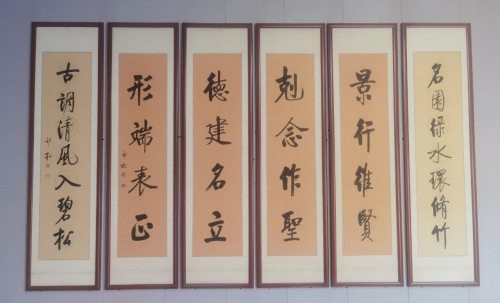 名園綠水環脩竹
景行維賢
剋念作聖
德建名立
形端表正
古調清風入碧松